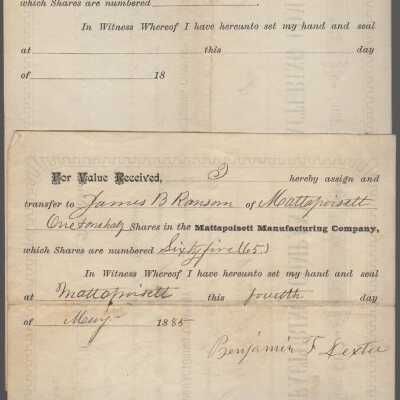 which Shares are numbered
In Witness Whereof I have hereunto set my hand and seal
at this day
of 18
For Value Received, I hereby assign and
transfer to James B Ransom of Mattapoisett
One & one half Shares in the Mattapoisett Manufacturing Company,
which Shares are numbered Sixty five (65)
In Witness Whereof I have hereunto set my hand and seal
at Mattapoisett this fourth day
of May 1885
Benjamin F Dexter